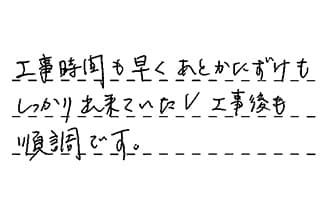 工事時間も早く あとかたずけも
しっかり出来ていたし 工事後も
順調です。